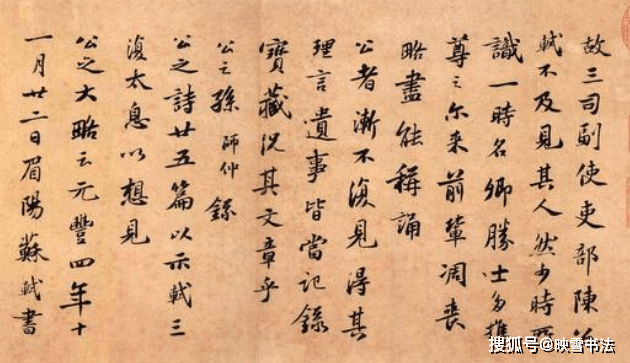 故三司副使吏部陳
軾不及見其人然少時所
識一時名卿勝士多推
尊之尔来前輩凋喪
略盡能稱誦
公者漸不復見得其
理言遺事皆當記錄
寶藏況其文章乎
公之孫師仲錄
公之詩廿五篇以示軾三
復太息以想見
公之大略云元豐四年十
一月廿二日眉陽蘇軾書
搜狐号@映雪书法